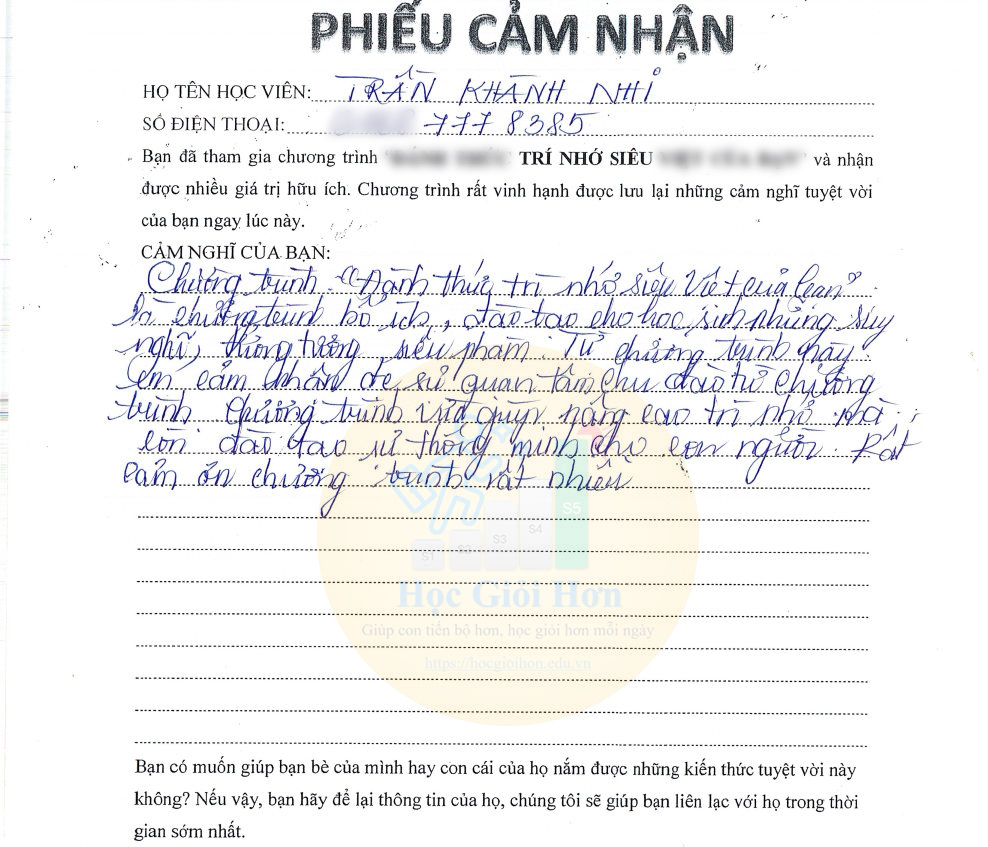 PHIẾU CẢM NHẬN
HỌ TÊN HỌC VIÊN: TRẦN KHÁNH NHI
SỐ ĐIỆN THOẠI: 777 8385
Bạn đã tham gia chương trình TRÍ NHỚ SIÊU và nhận
được nhiều giá trị hữu ích. Chương trình rất vinh hạnh được lưu lại những cảm nghĩ tuyệt vời
của bạn ngay lúc này.
CẢM NGHĨ CỦA BẠN:
Chương trình "Đánh thức trí nhớ siêu Việt của bạn"
là chương trình bổ ích, đào tạo cho học sinh những suy
nghĩ, tưởng, siêu phàm. Từ chương trình này
em cảm nhận sự quan tâm, chu đáo từ chương
trình. Chương trình vừa giúp nâng cao trí nhớ mà
còn đào tạo sự thông minh cho con người. Rất
cảm ơn chương trình rất nhiều
S1
S2
S3
S4
S5
Học Giỏi Hơn
Giúp con tiến bộ hơn, học giỏi hơn mỗi ngày
https://hocgioihon.edu.vn
Bạn có muốn giúp bạn bè của mình hay con cái của họ nắm được những kiến thức tuyệt vời này
không? Nếu vậy, bạn hãy để lại thông tin của họ, chúng tôi sẽ giúp bạn liên lạc với họ trong thời
gian sớm nhất.